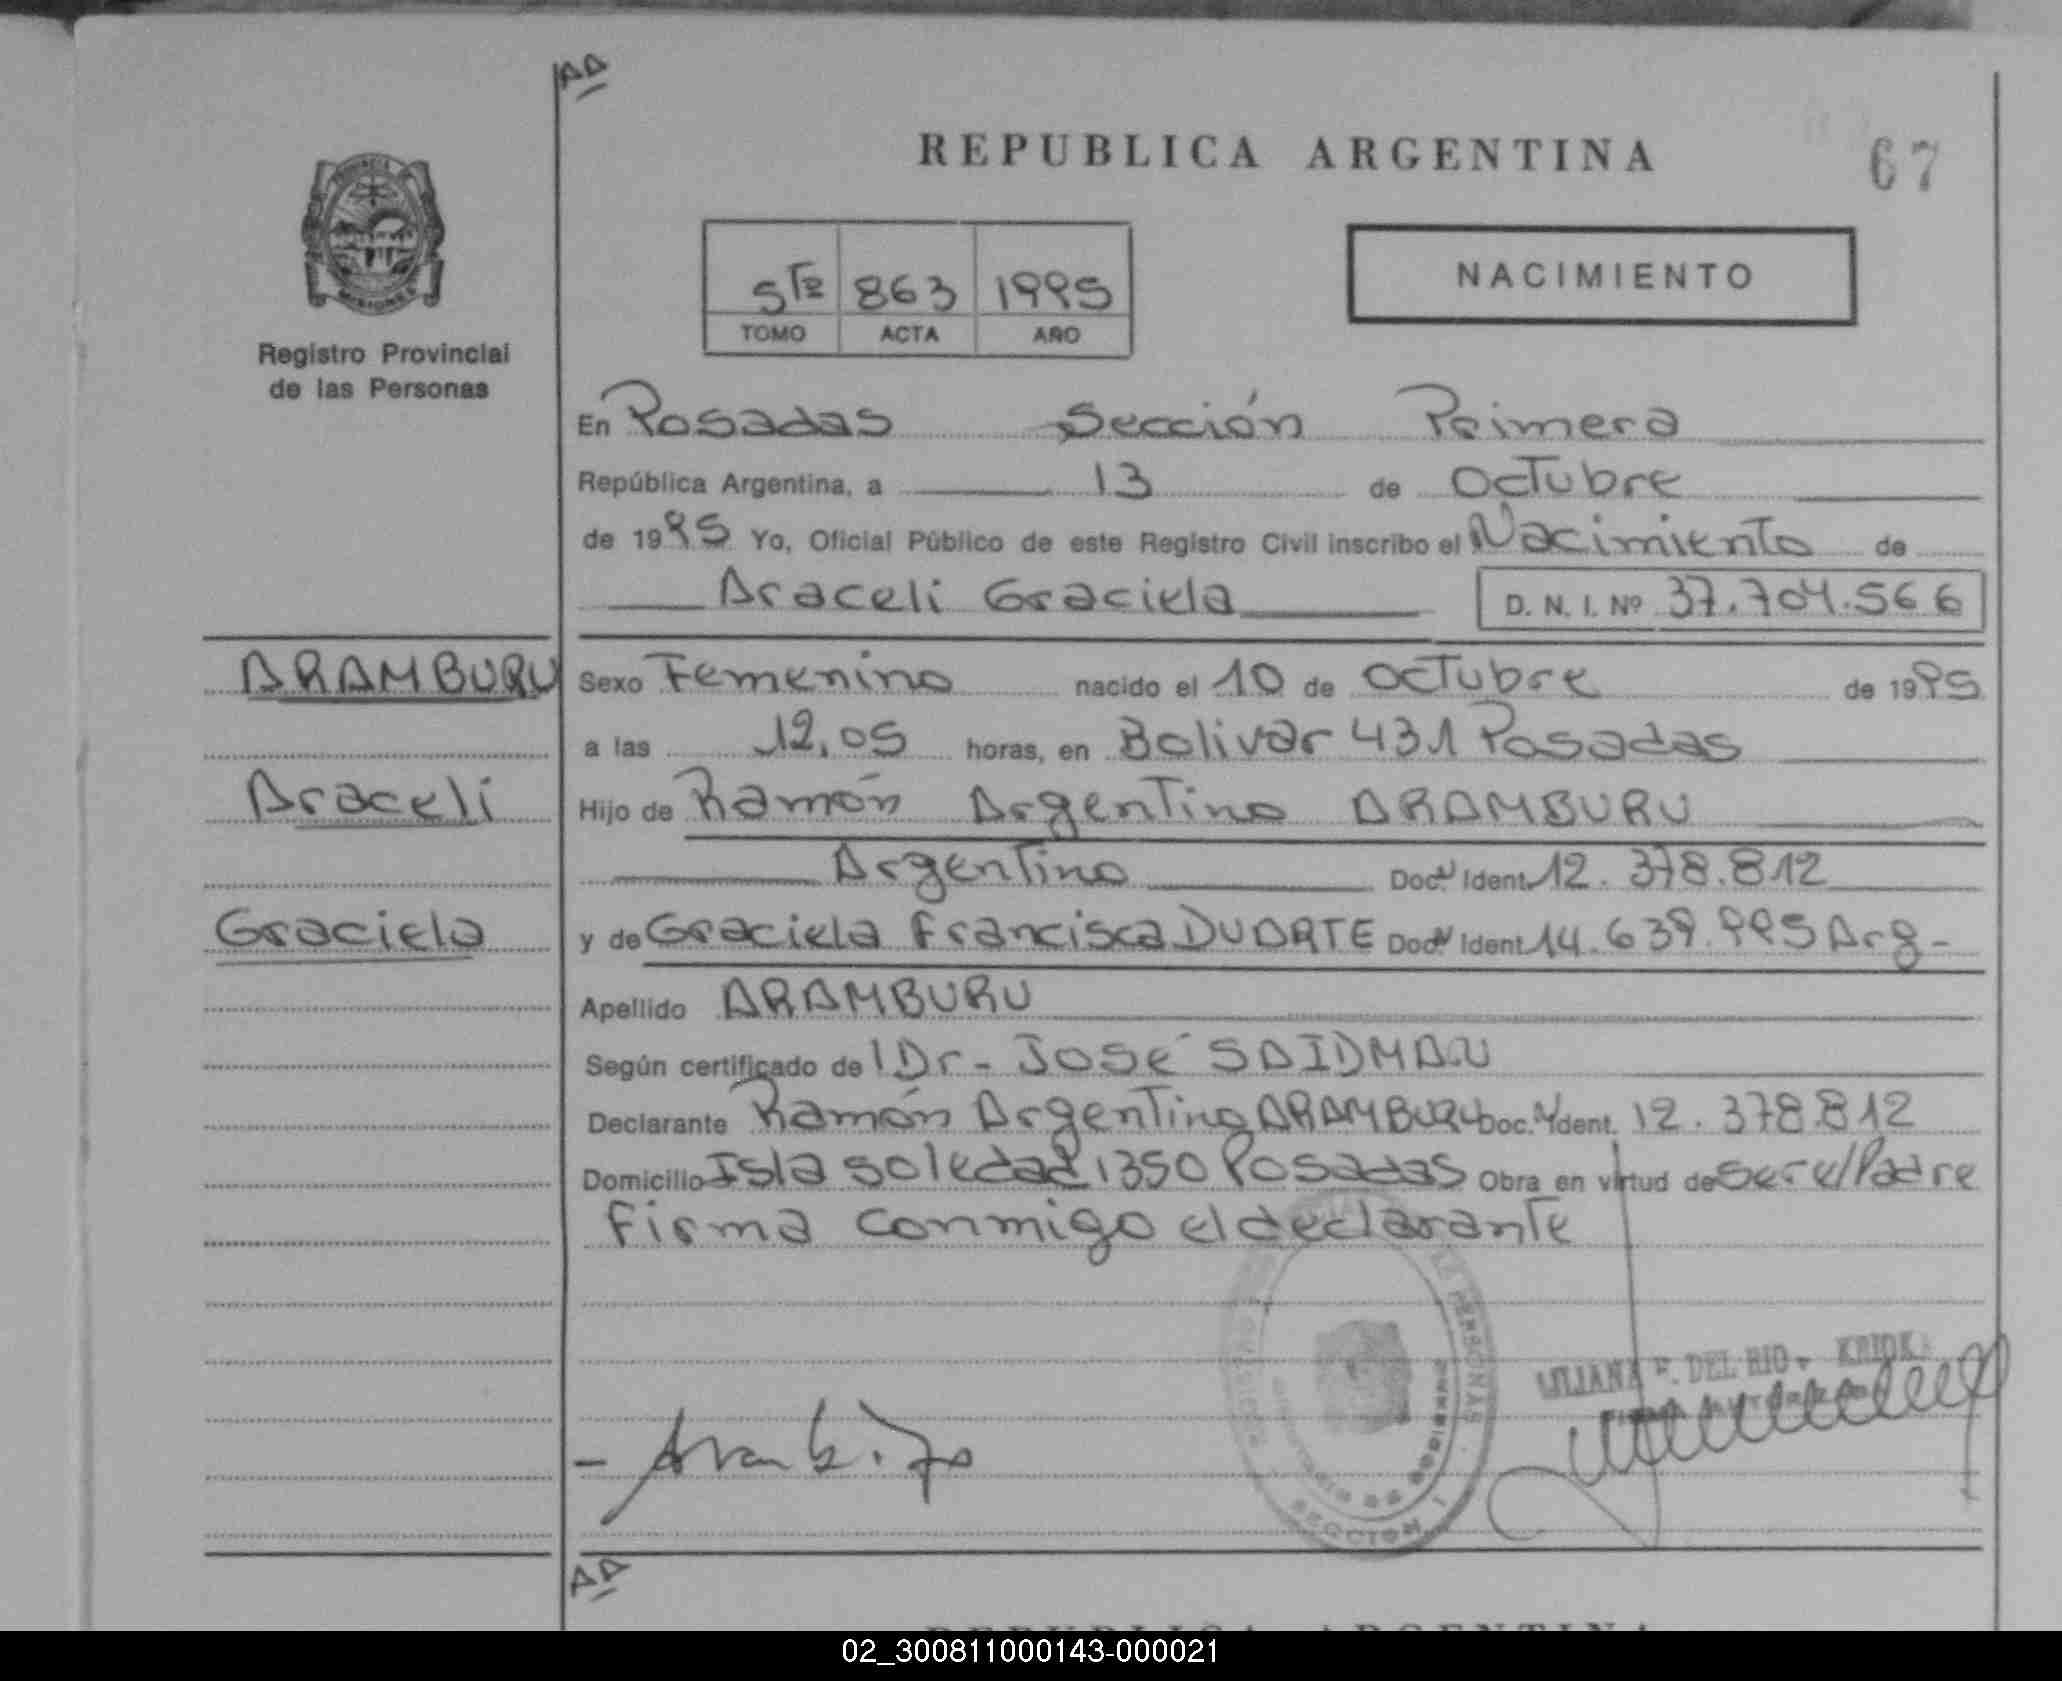 AA
REPUBLICA ARGENTINA 67
PROVINCIA
MISIONES
Registro Provincial
de las Personas
NACIMIENTO
5to 863 1995
TOMO ACTA AÑO
En Posadas Sección Primera
República Argentina, a 13 de Octubre
de 1995 Yo, Oficial Público de este Registro Civil inscribo el Nacimiento de
Araceli Graciela D. N. I. Nº 37.704.566
ARAMBURU
Sexo Femenino nacido el 10 de Octubre de 1995
a las 12,05 horas, en Bolivar 431 Posadas
Araceli
Hijo de Ramón Argentino ARAMBURU
Argentino Doc. N Ident 12.378.812
Graciela
y de Graciela Francisca DUARTE Doc. N Ident 14.639.995 Arg-
Apellido ARAMBURU
Según certificado de l Dr- José SAIDMAN
Declarante Ramón Argentino ARAMBURU Doc. N Ident. 12.378.812
Domicilio Isla Soledad 1350 Posadas Obra en virtud de ser el Padre
Firma conmigo el declarante
LILIANA F. DEL RIO
SECCION 1
AA
REPUBLICA ARGENTINA
02_300811000143-000021